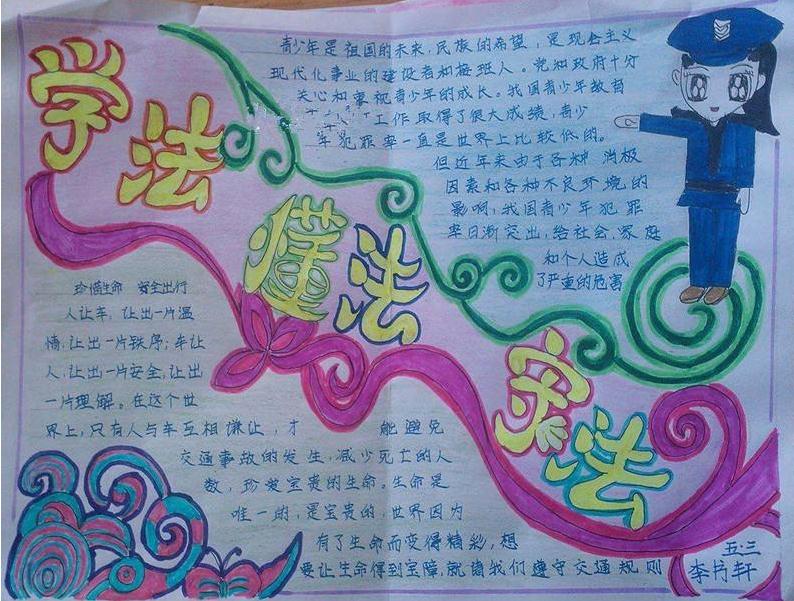 学法
懂法
守法
青少年是祖国的未来,民族的希望,是现会主义
现代化事业的建设者和接班人。党和政府十分
关心和重视青少年的成长。我国青少年教育
工作取得了很大成绩,青少
年犯罪率一直是世界上比较低的。
但近年来由于各种消极
因素和各种不良环境的
影响,我国青少年犯罪
率日渐突出,给社会,家庭
和个人造成
了严重的危害
珍惜生命 安全出行
人让车,让出一片温
情,让出一片秩序;车让
人,让出一片安全,让出
一片理解。在这个世
界上,只有人与车互相谦让,才能避免
交通事故的发生,减少死亡的人
数,珍爱宝贵的生命。生命是
唯一的,是宝贵的,世界因为
有了生命而变得精彩,想
要让生命得到宝障,就请我们遵守交通规则
五.三
李书轩